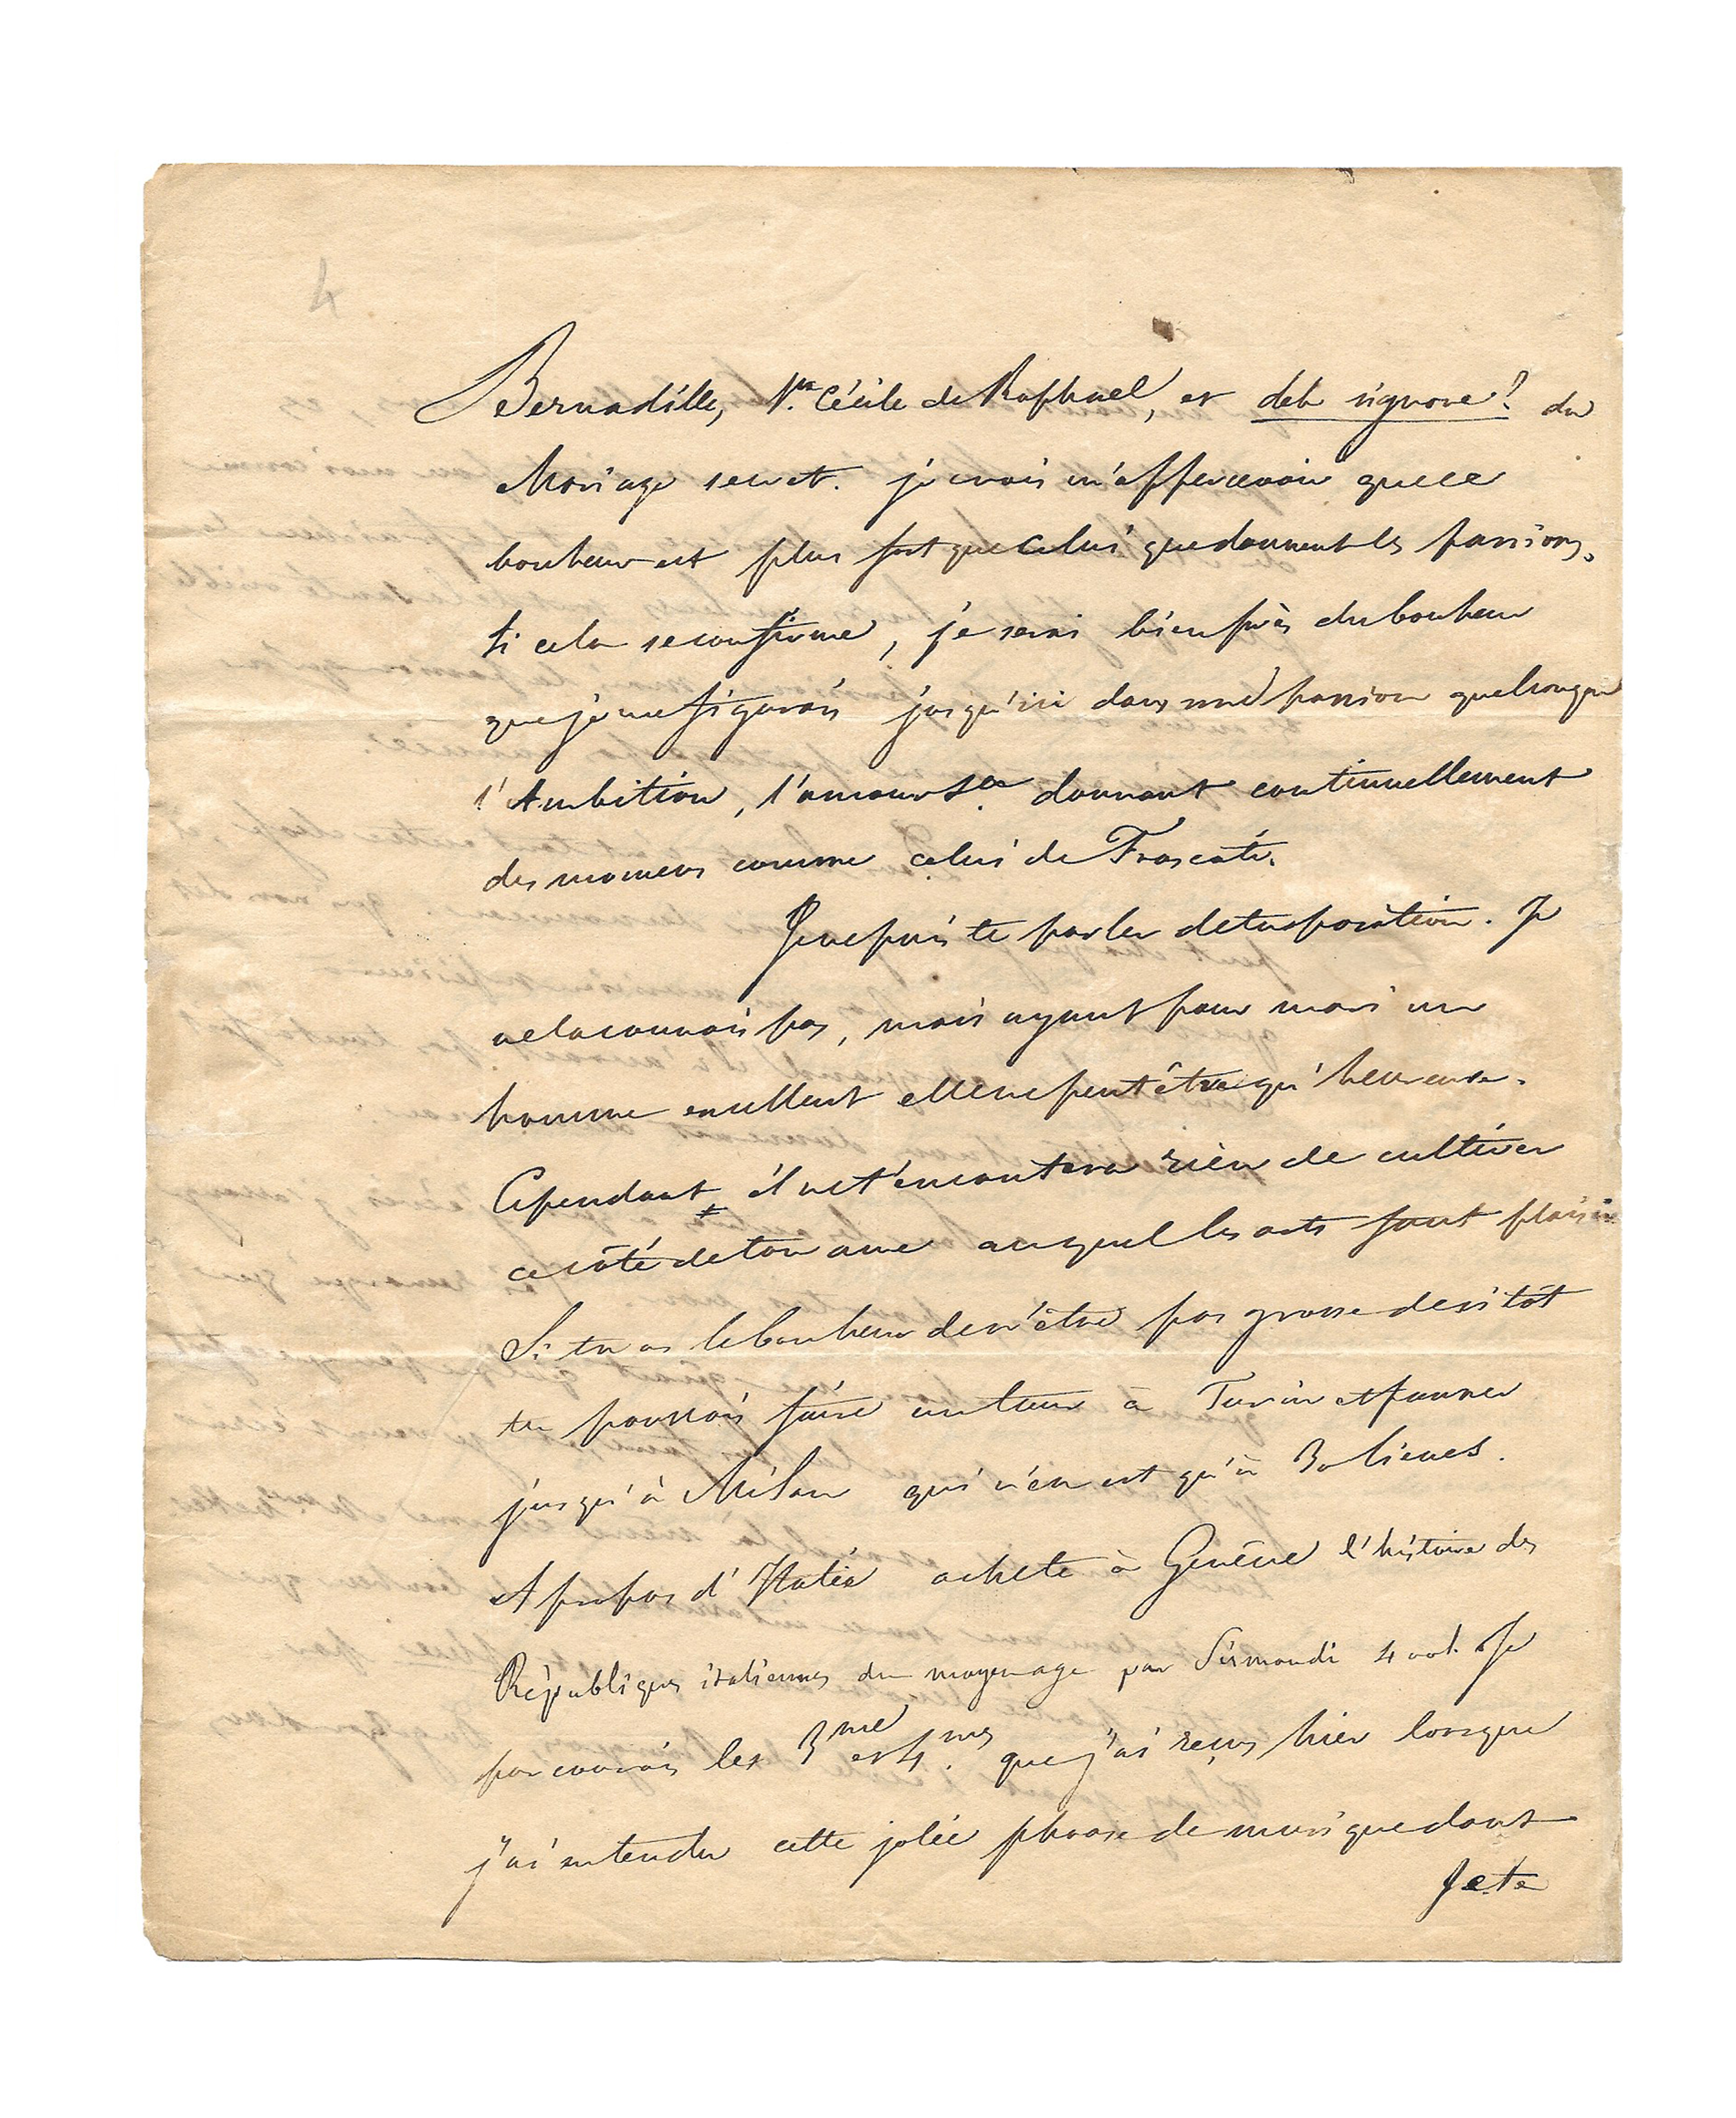 4
Bernadille, Ste Cécile de Raphael, et deh signore! du
Mariage secret. je crois m'appercevoir que ce
bonheur est plus fort que celui que donnent les passions.
Si cela se confirme, je serai bien près du bonheur
que je me figurais jusqu'ici dans une passion quelconque
l'Ambition, l'amour &a. donnant continuellement
des momens comme celui de Frascati.
Je ne puis te parler de ta position. Je
ne la connais pas, mais ayant pour mari un
homme excellent elle ne peut être qu'heureuse.
Cependant il ne t'en coutera rien de cultiver
ce côté de ton ame auquel les arts font plaisir
Si tu as le bonheur de n'être pas grosse de sitôt
tu pourrais faire un tour à Turin et pousser
jusqu'à Milan qui n'en est qu'à 30 lieues.
A propos d'Italie achete à Genêve l'histoire des
Républiques italiennes du moyen age par Sismondi 4 vol. Je
parcourais les 3me et 4mes que j'ai reçus hier lorsque
j'ai entendu cette jolie phrase de musique dont
Je te